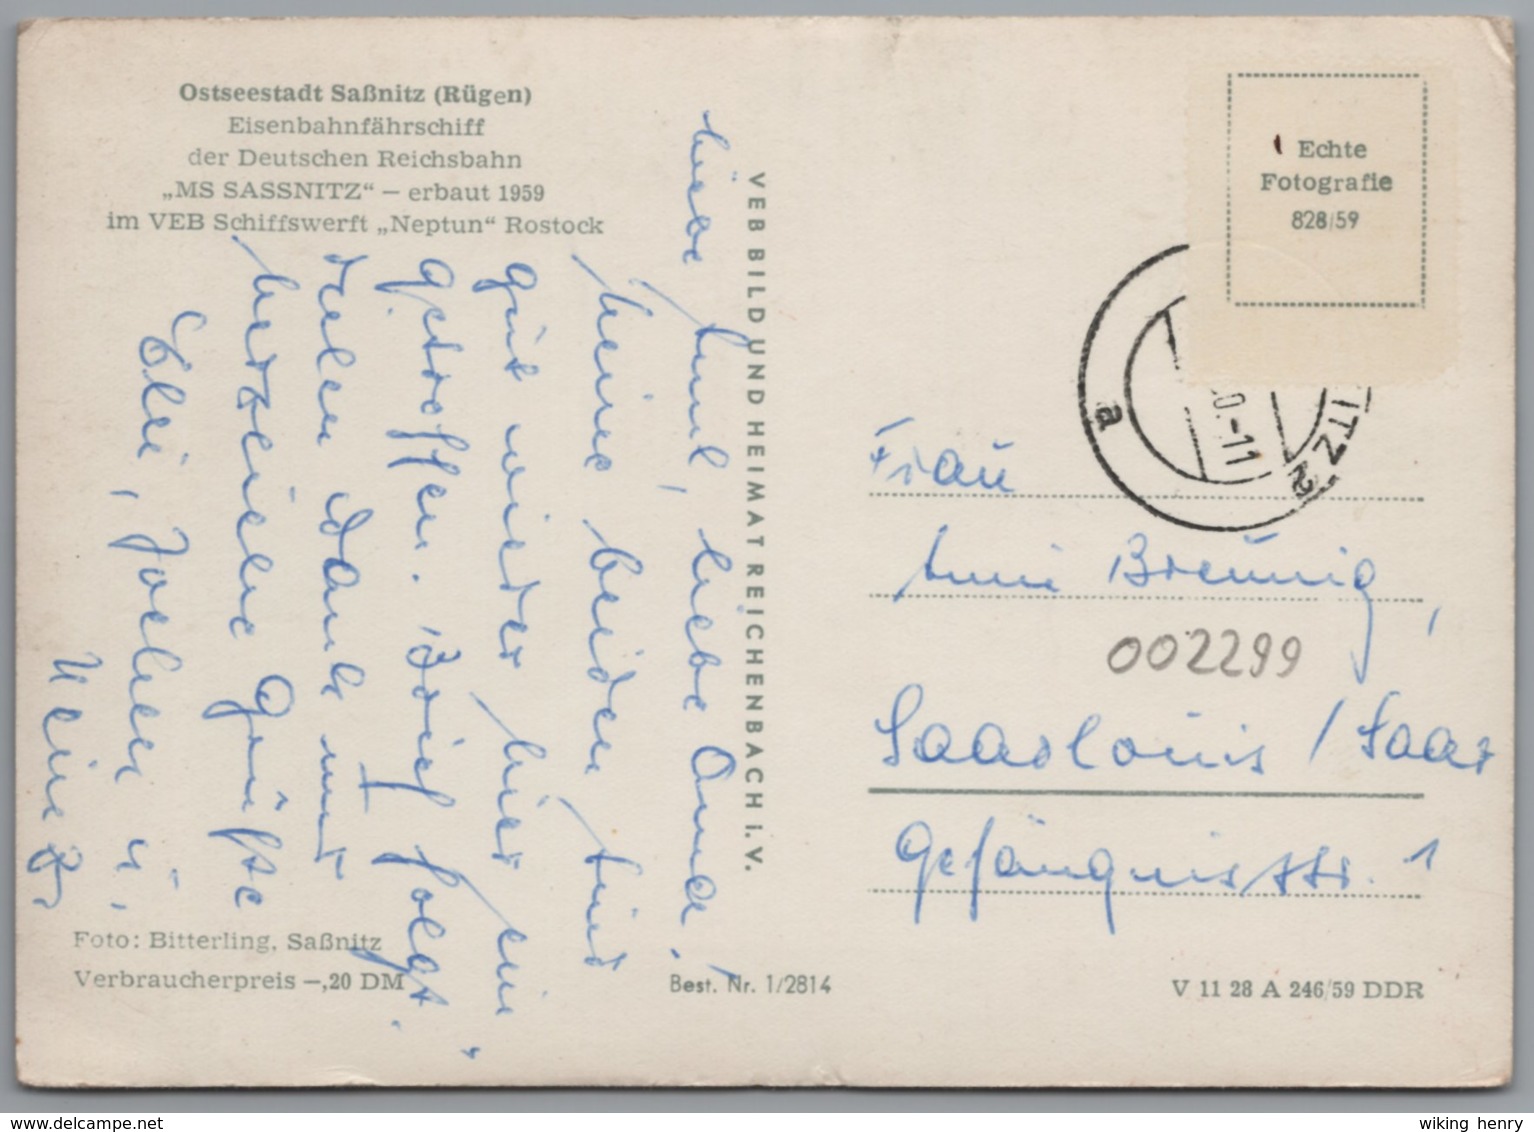 Ostseestadt Saßnitz (Rügen)
Eisenbahnfährschiff
der Deutschen Reichsbahn
„MS SASSNITZ“ — erbaut 1959
im VEB Schiffswerft „Neptun“ Rostock
Liebe Emil, liebe Anna!
Meine beiden sind
gut wieder hier ein-
getroffen. Brief folgt.
Vielen Dank und
herzliche Grüsse
Elli, Jochen u.
Heinz
Foto: Bitterling, Saßnitz
Verbraucherpreis —,20 DM
Best. Nr. 1/2814
VEB BILD UND HEIMAT REICHENBACH i. V.
Echte
Fotografie
828/59
ITZ 2
a
0.-11
Frau
Anni Breunig,
002299
Saarlouis / Saar
Gefängnisstr. 1
V 11 28 A 246/59 DDR
www.delcampe.net
wiking henry